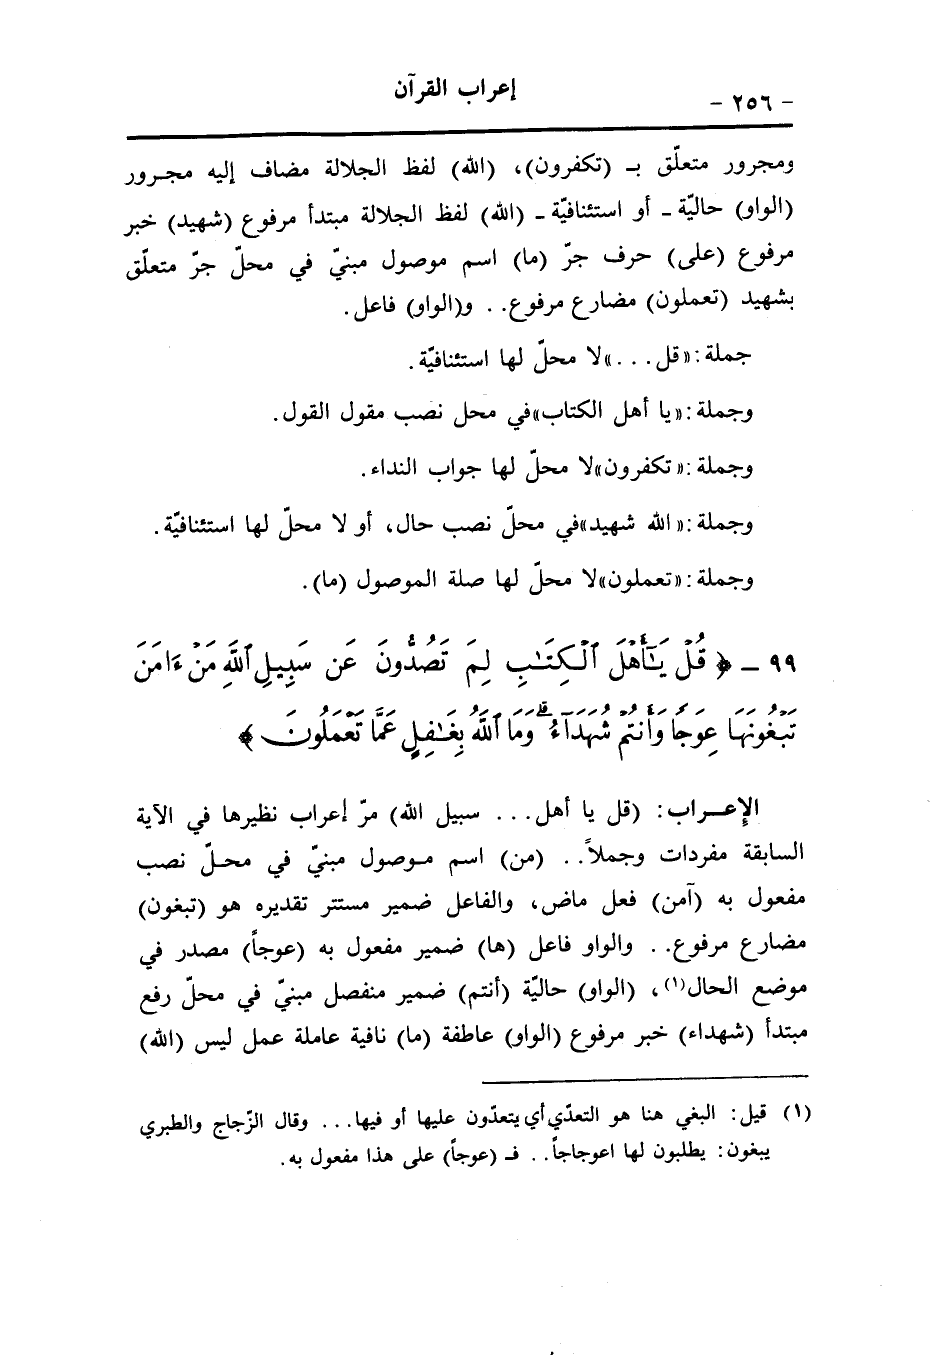 - ٢٥٦ -
إعراب القرآن
ومجرور متعلّق بـ (تكفرون)، (الله) لفظ الجلالة مضاف إليه مجـرور
(الواو) حاليّة - أو استئنافيّة - (الله) لفظ الجلالة مبتدأ مرفوع (شهيد) خبر
مرفوع (على) حرف جرّ (ما) اسم موصول مبنيّ في محلّ جرّ متعلّق
بشهيد (تعملون) مضارع مرفوع. . و(الواو) فاعل.
جملة: «قل. . .» لا محلّ لها استئنافيّة.
وجملة: «يا أهل الكتاب» في محل نصب مقول القول.
وجملة: «تكفرون» لا محلّ لها جواب النداء.
وجملة: «الله شهيد» في محلّ نصب حال، أو لا محلّ لها استئنافيّة.
وجملة: «تعملون» لا محلّ لها صلة الموصول (ما).
٩٩ - ﴿ قُلْ يَـٰٓأَهْلَ ٱلْكِتَـٰبِ لِمَ تَصُدُّونَ عَن سَبِيلِ ٱللَّهِ مَنْ ءَامَنَ
تَبْغُونَهَا عِوَجًا وَأَنتُمْ شُهَدَآءُ ۗ وَمَا ٱللَّهُ بِغَـٰفِلٍ عَمَّا تَعْمَلُونَ ﴾
الإعـــراب: (قل يا أهل. . . سبيل الله) مرّ إعراب نظيرها في الآية
السابقة مفردات وجملاً. . (من) اسم مـوصول مبنيّ في محـلّ نصب
مفعول به (آمن) فعل ماض، والفاعل ضمير مستتر تقديره هو (تبغون)
مضارع مرفوع. . والواو فاعل (ها) ضمير مفعول به (عوجاً) مصدر في
موضع الحال(١)، (الواو) حاليّة (أنتم) ضمير منفصل مبنيّ في محلّ رفع
مبتدأ (شهداء) خبر مرفوع (الواو) عاطفة (ما) نافية عاملة عمل ليس (الله)
(١) قيل: البغي هنا هو التعدّي أي يتعدّون عليها أو فيها. . . وقال الزّجاج والطبري
يبغون: يطلبون لها اعوجاجاً. . فـ (عوجاً) على هذا مفعول به.